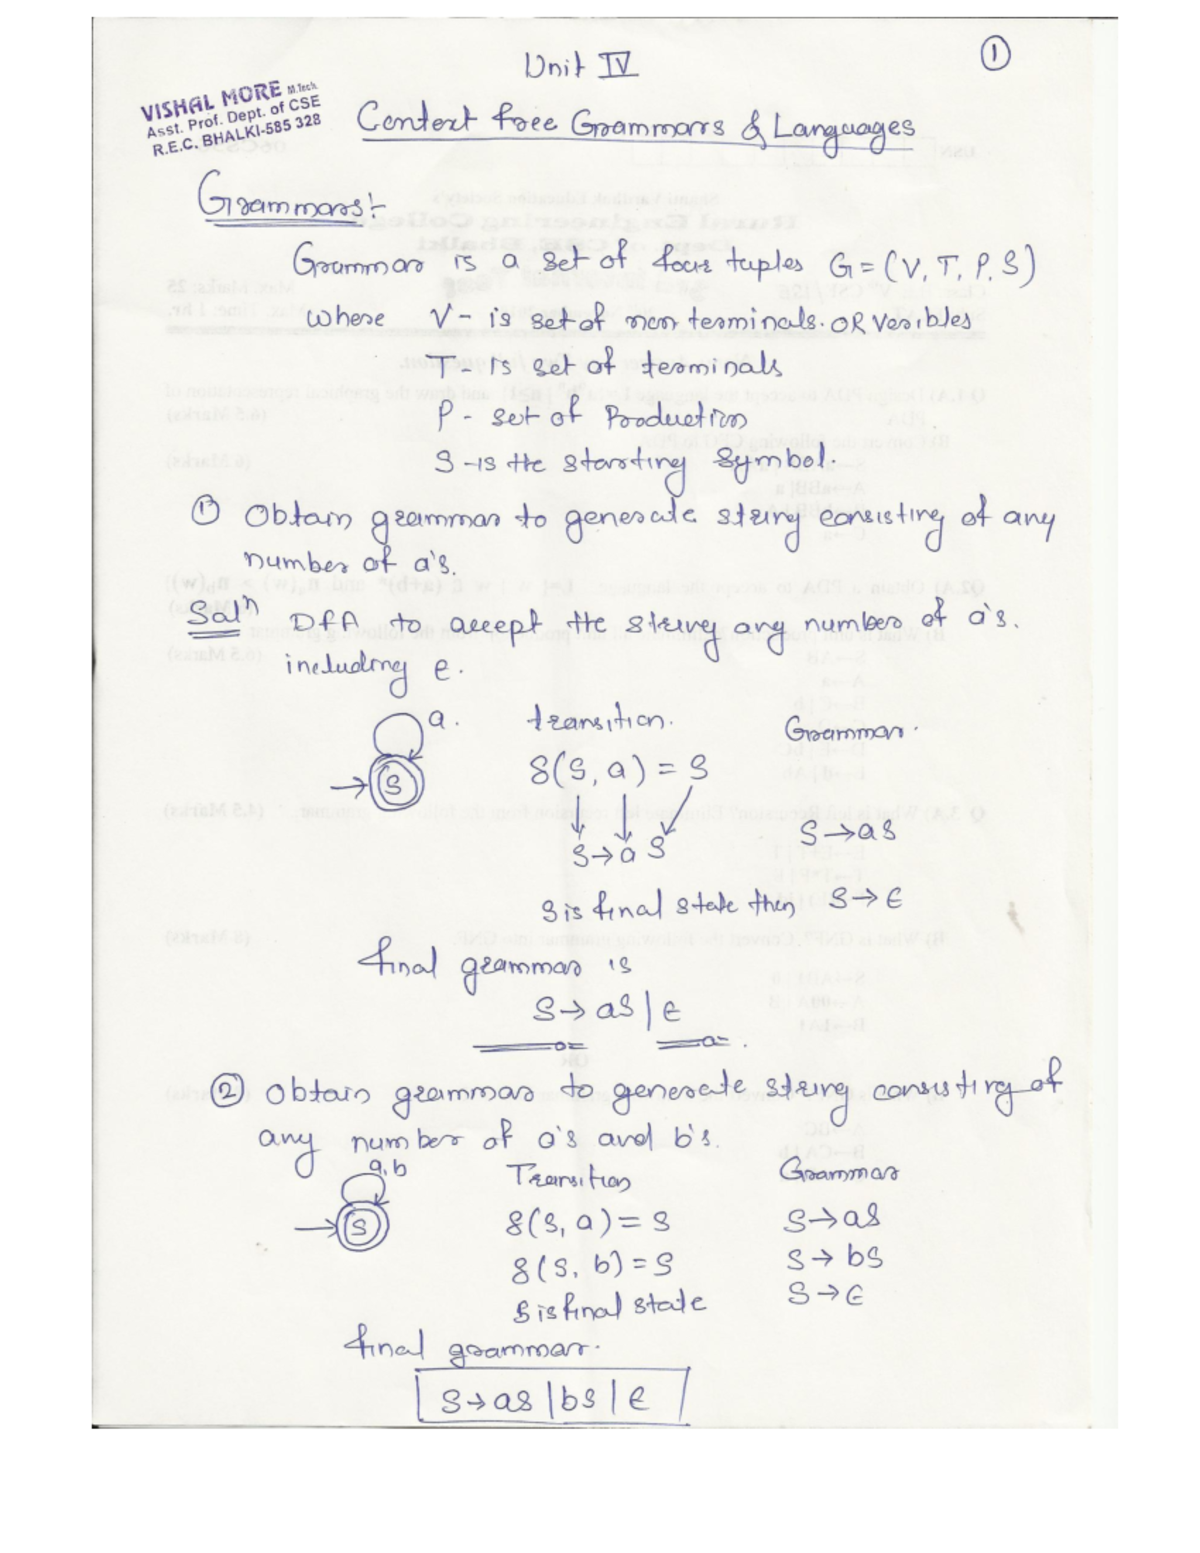 Unit IV
①
VISHAL MORE M.Tech.
Asst. Prof. Dept. of CSE
R.E.C. BHALKI-585 328
Context free Grammars & Languages
Grammars:-
Grammar is a set of four tuples G = (V, T, P, S)
where V - is set of non terminals. OR Veribles
T - is set of terminals
P - set of Production
S - is the starting symbol.
① Obtain grammar to generate string consisting of any
number of a's.
Solⁿ DFA to accept the string any number of a's.
including ϵ.
a. transition. Grammar.
→ S δ(S, a) = S
S → a S S → aS
S is final state then S → ϵ
final grammar is
S → aS | ϵ
② Obtain grammar to generate string consisting of
any number of a's and b's.
a, b Transition Grammar
→ S δ(S, a) = S S → aS
δ(S, b) = S S → bS
S is final state S → ϵ
final grammar.
S → aS | bS | ϵ